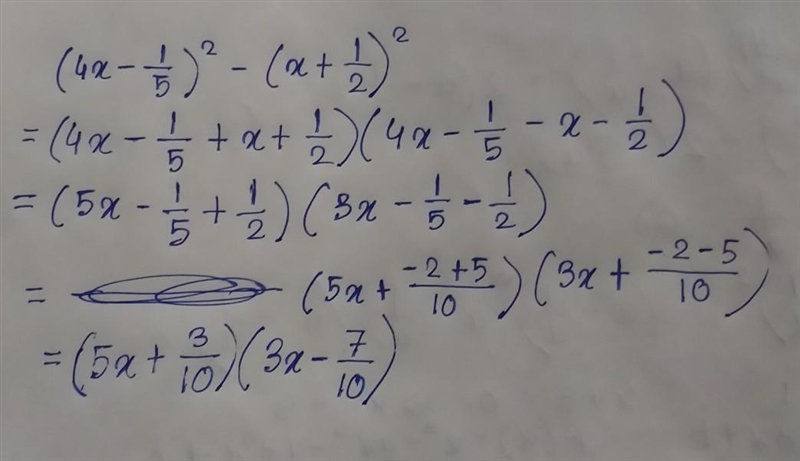 (4x - 1/5)² - (x + 1/2)²
= (4x - 1/5 + x + 1/2)(4x - 1/5 - x - 1/2)
= (5x - 1/5 + 1/2)(3x - 1/5 - 1/2)
= (5x + (-2+5)/10)(3x + (-2-5)/10)
= (5x + 3/10)(3x - 7/10)